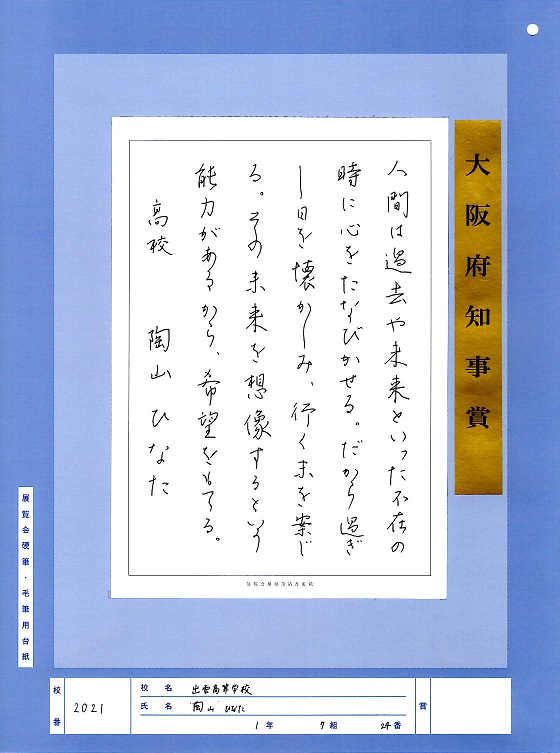 大阪府知事賞
人間は過去や未来といった不在の
時に心をたなびかせる。だから過ぎ
し日を懐かしみ、行く末を案じ
る。その未来を想像するという
能力があるから、希望をもてる。
高校 陶山ひなた
展覧会硬筆・毛筆用台紙
校番 2021
校名 出雲高等学校
氏名 陶山 ひなた
1年 7組 24番
賞